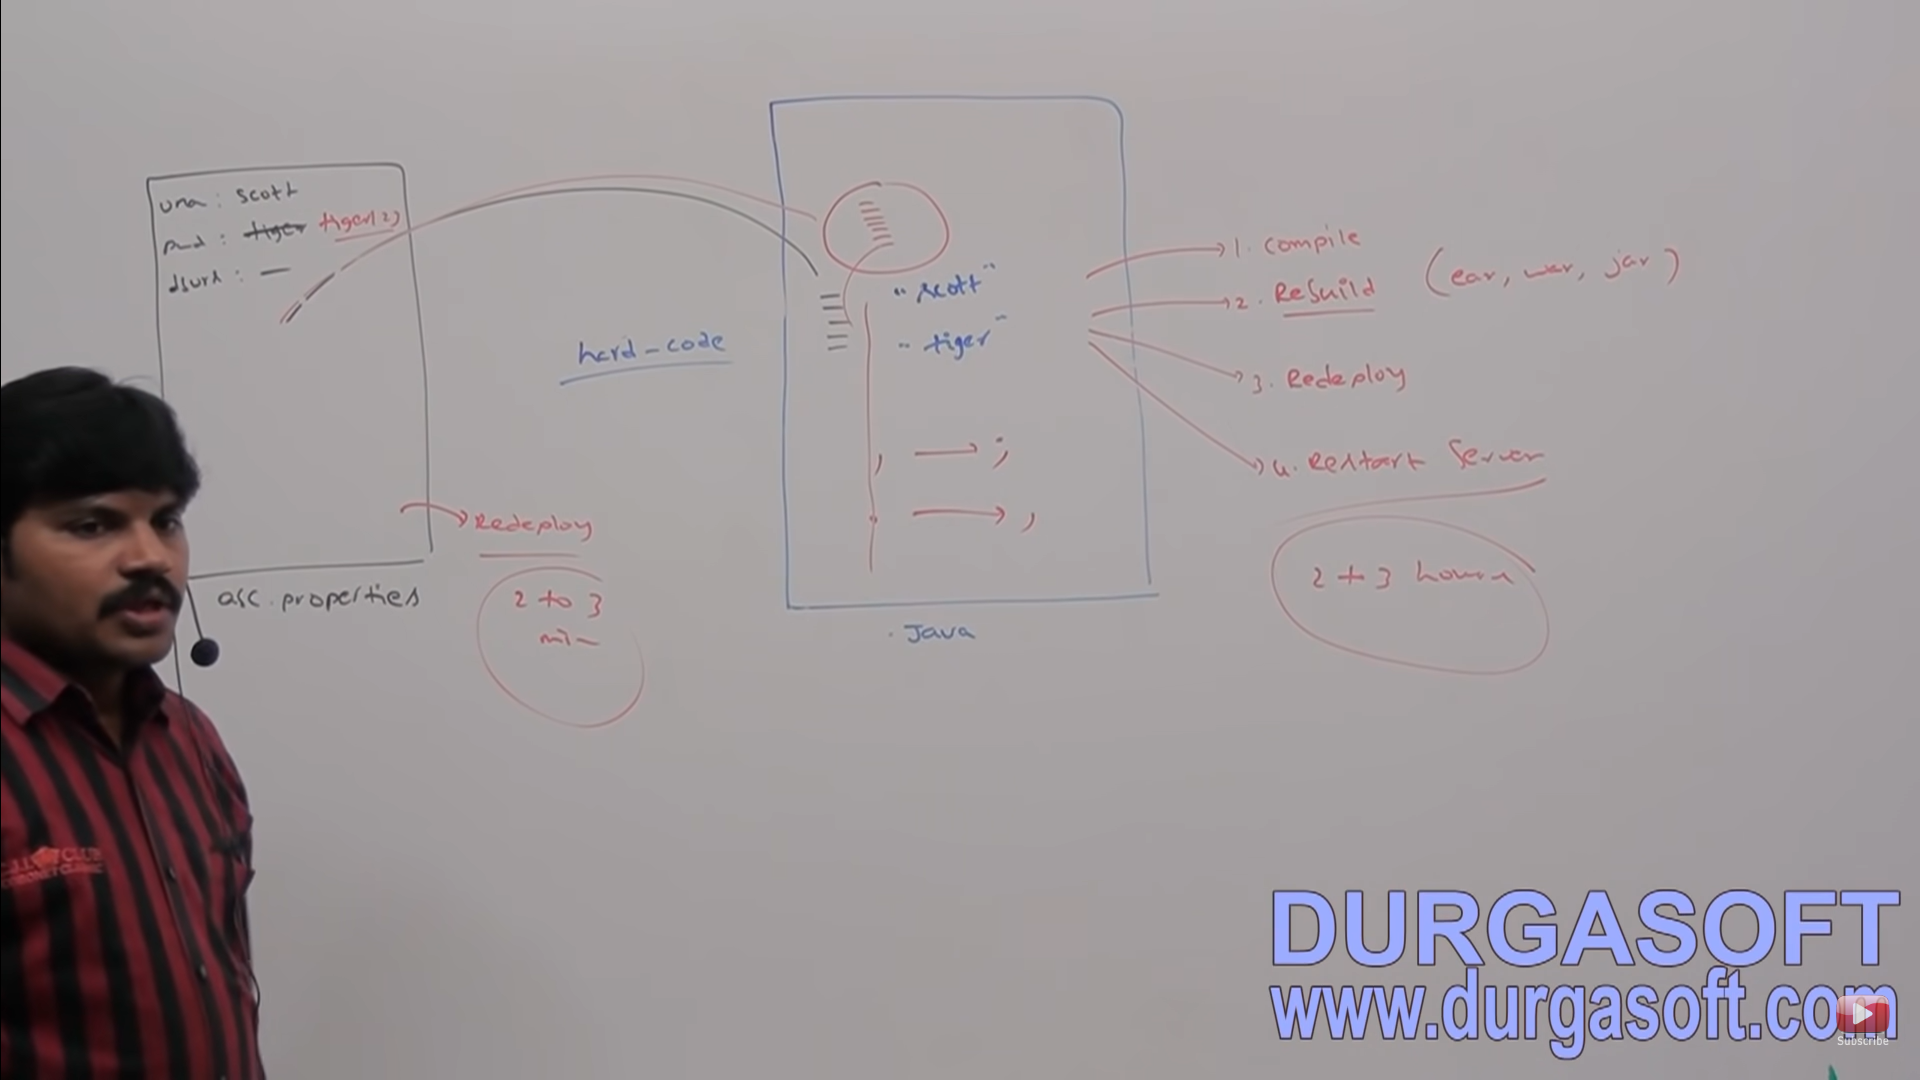 una : scott
pwd : tiger tiger123
dburl : —
abc.properties
Redeploy
2 to 3
min
hard-code
"scott"
"tiger"
, → ;
. → ,
.Java
1. Compile
2. Rebuild (ear, war, jar)
3. Redeploy
4. Restart Server
2 to 3 hours
DURGASOFT
www.durgasoft.com
Subscribe